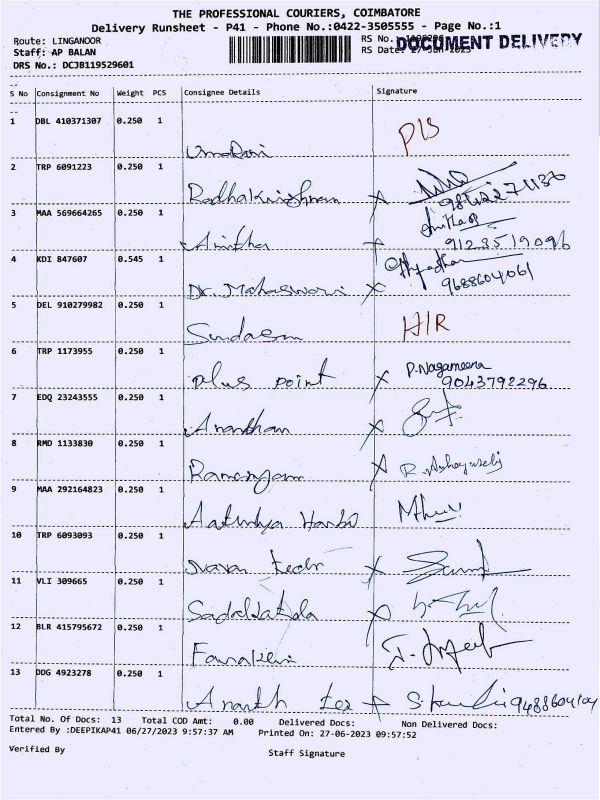 THE PROFESSIONAL COURIERS, COIMBATORE
Delivery Runsheet - P41 - Phone No.:0422-3505555 - Page No.:1
Route: LINGANOOR
Staff: AP BALAN
DRS No.: DCJB119529601
RS No.
RS Date: 27-Jun-2023
DOCUMENT DELIVERY
S No Consignment No Weight PCS Consignee Details Signature
1 DBL 410371307 0.250 1 UmaRani P13
2 TRP 6091223 0.250 1 Radhakrishnan X 9842271130
3 MAA 569664265 0.250 1 Anitha X Anitha 9123519096
4 KDI 847607 0.545 1 Dr. Maheswari X 9688604061
5 DEL 910279982 0.250 1 Sundaram H/R
6 TRP 1173955 0.250 1 plus point X P. Nagameena 9043792296
7 EDQ 23243555 0.250 1 Ananthan X
8 RMD 1133830 0.250 1 X
9 MAA 292164823 0.250 1
10 TRP 6093093 0.250 1 X
11 VLI 309665 0.250 1 X
12 BLR 415795672 0.250 1
13 DDG 4923278 0.250 1 Ananth Tex X 9488604104
Total No. Of Docs: 13 Total COD Amt: 0.00 Delivered Docs: Non Delivered Docs:
Entered By :DEEPIKAP41 06/27/2023 9:57:37 AM Printed On: 27-06-2023 09:57:52
Verified By Staff Signature